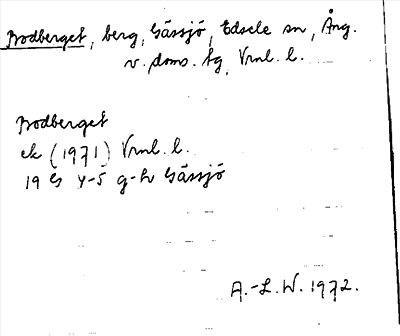 Brodberget, berg, Gåssjö, Edsele sn, Ång.
v. doms. tg, Vrnl. l.
Brodberget
ek (1971) Vrnl. l.
19 G 4-5 g-h Gåssjö
A.-L. W. 1972.